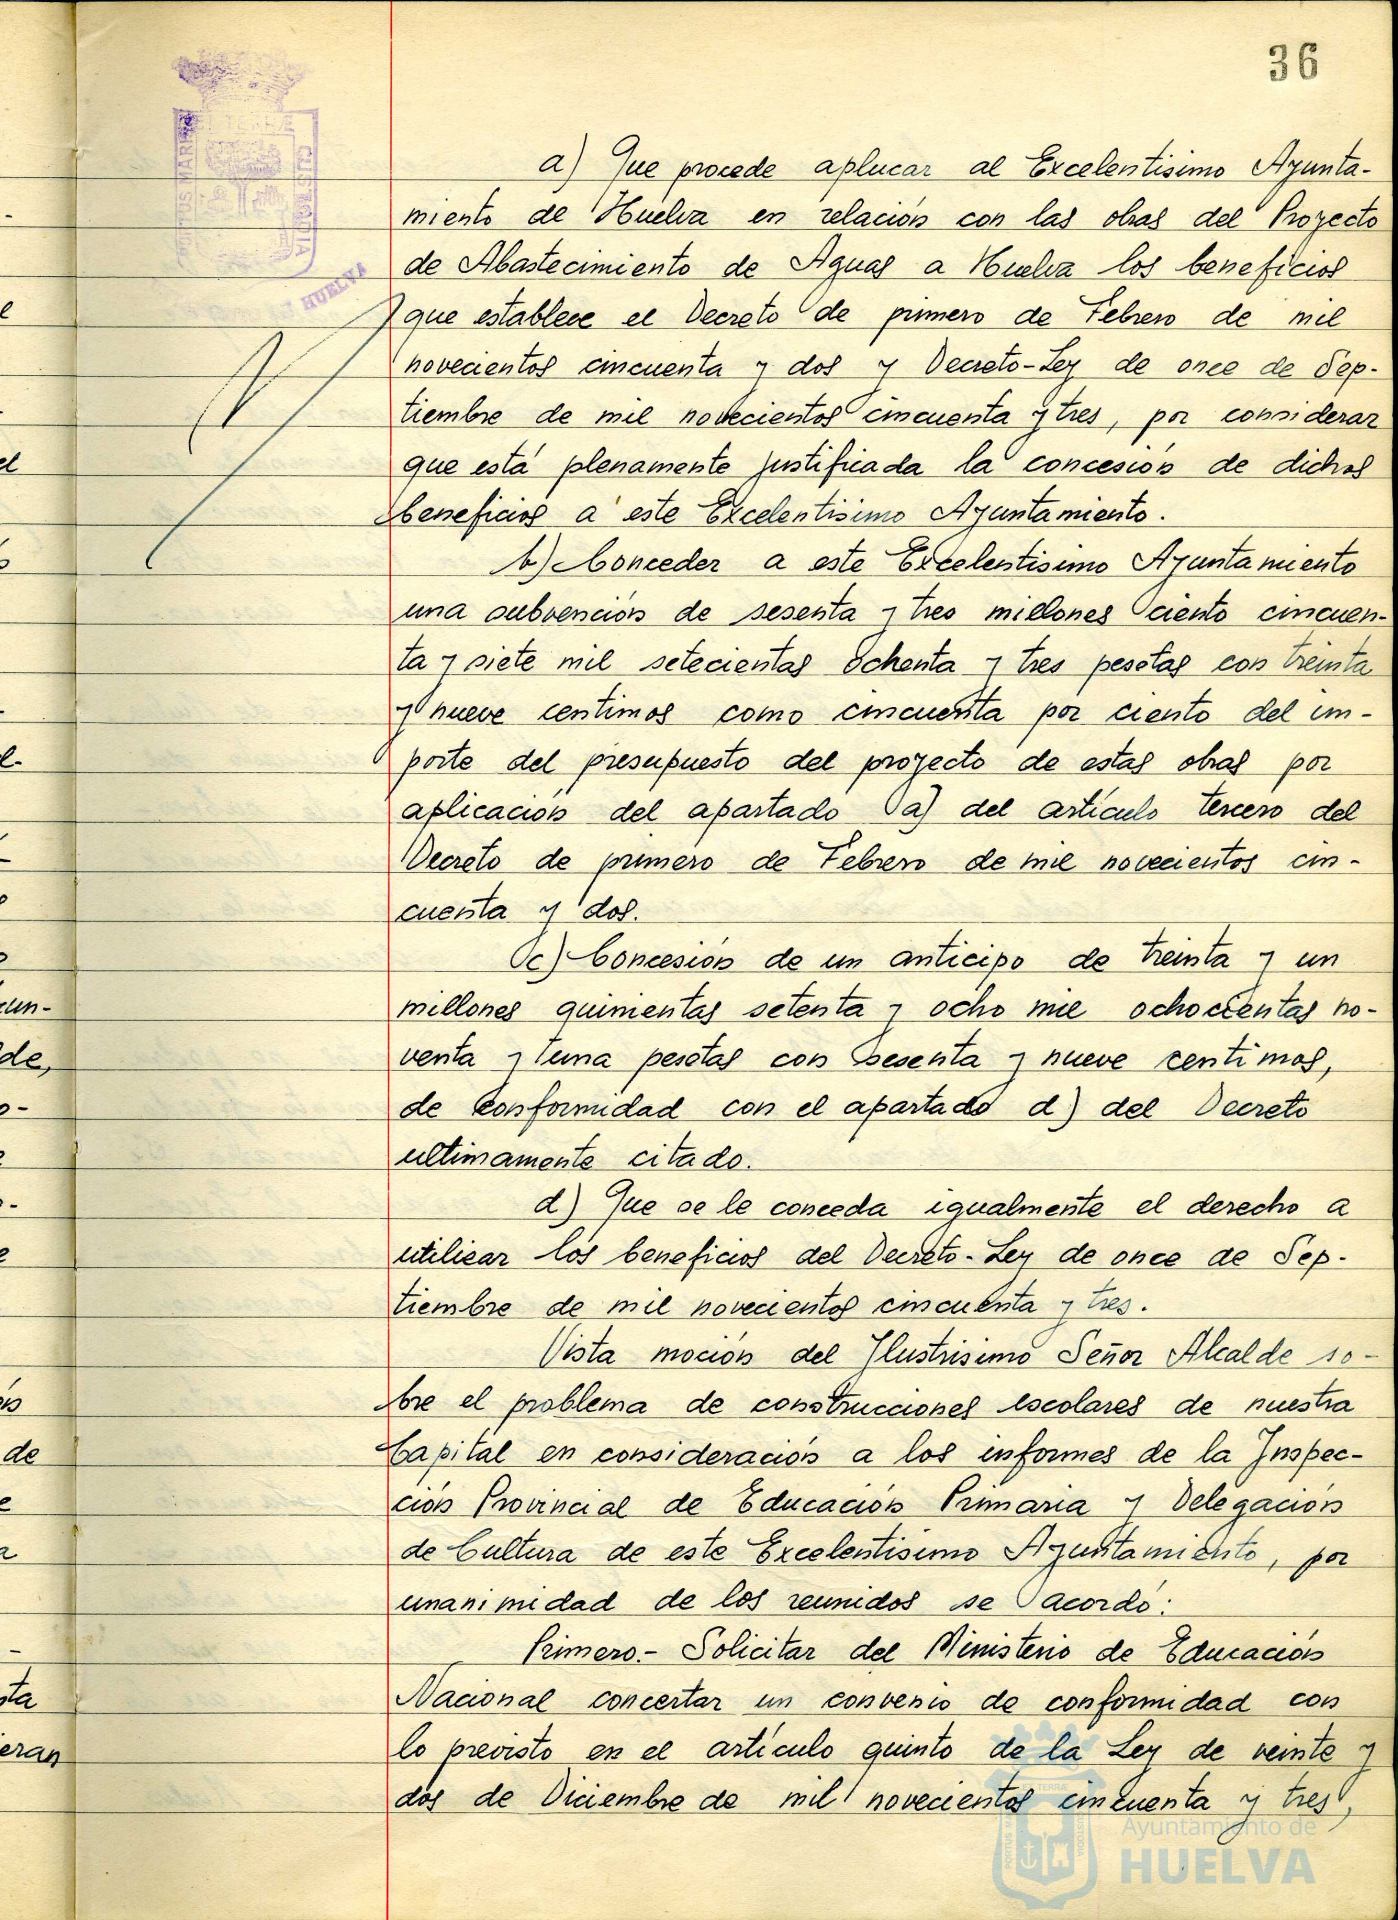 36
a) Que procede aplucar al Excelentisimo Ayunta-
miento de Huelva en relación con las obras del Proyecto
de Abastecimiento de Aguas a Huelva los beneficios
que establece el Decreto de primero de Febrero de mil
novecientos cincuenta y dos y Decreto-Ley de once de Sep-
tiembre de mil novecientos cincuenta y tres, por considerar
que está plenamente justificada la concesión de dichos
beneficios a este Excelentisimo Ayuntamiento.
b) Conceder a este Excelentisimo Ayuntamiento
una subvención de sesenta y tres millones ciento cincuen-
ta y siete mil setecientas ochenta y tres pesetas con treinta
y nueve centimos como cincuenta por ciento del im-
porte del presupuesto del proyecto de estas obras por
aplicación del apartado a) del artículo tercero del
Decreto de primero de Febrero de mil novecientos cin-
cuenta y dos.
c) Concesión de un anticipo de treinta y un
millones quinientas setenta y ocho mil ochocientas no-
venta y una pesetas con sesenta y nueve centimos,
de conformidad con el apartado d) del Decreto
ultimamente citado.
d) Que se le conceda igualmente el derecho a
utilizar los beneficios del Decreto-Ley de once de Sep-
tiembre de mil novecientos cincuenta y tres.
Vista moción del Ilustrisimo Señor Alcalde so-
bre el problema de construcciones escolares de nuestra
Capital en consideración a los informes de la Inspec-
ción Provincial de Educación Primaria y Delegación
de Cultura de este Excelentisimo Ayuntamiento, por
unanimidad de los reunidos se acordó:
Primero.- Solicitar del Ministerio de Educación
Nacional concertar un convenio de conformidad con
lo previsto en el artículo quinto de la Ley de veinte y
dos de Diciembre de mil novecientos cincuenta y tres,
PORTUS MARIS
ET TERRÆ
CUSTODIA
HUELVA
Ayuntamiento de
HUELVA